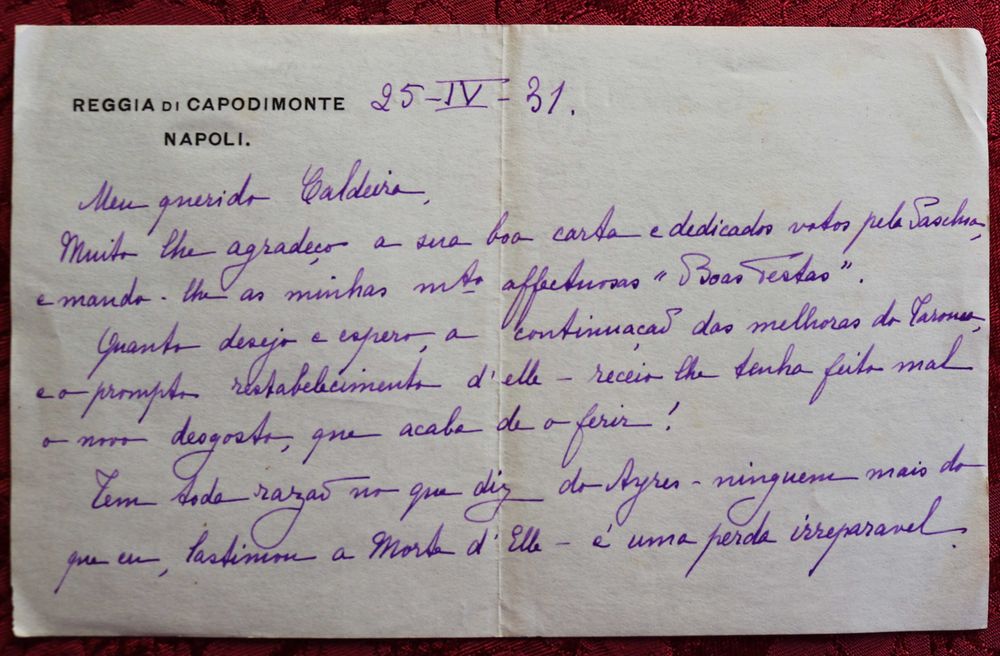 REGGIA DI CAPODIMONTE 25-IV-31.
NAPOLI.
Meu querido Caldeira,
Muito lhe agradeço a sua boa carta e dedicados votos pela Paschoa,
e mando-lhe as minhas mto affectuosas "Boas Festas".
Quanto desejo e espero, a continuaçaõ das melhoras do Tarouca,
e o prompto restabelecimento d'elle - receio lhe tenha feito mal
o novo desgosto, que acaba de o ferir!
Tem toda razaõ no que diz do Ayres - ninguem mais do
que eu, lastimou a Morte d'Elle - é uma perda irreparavel.